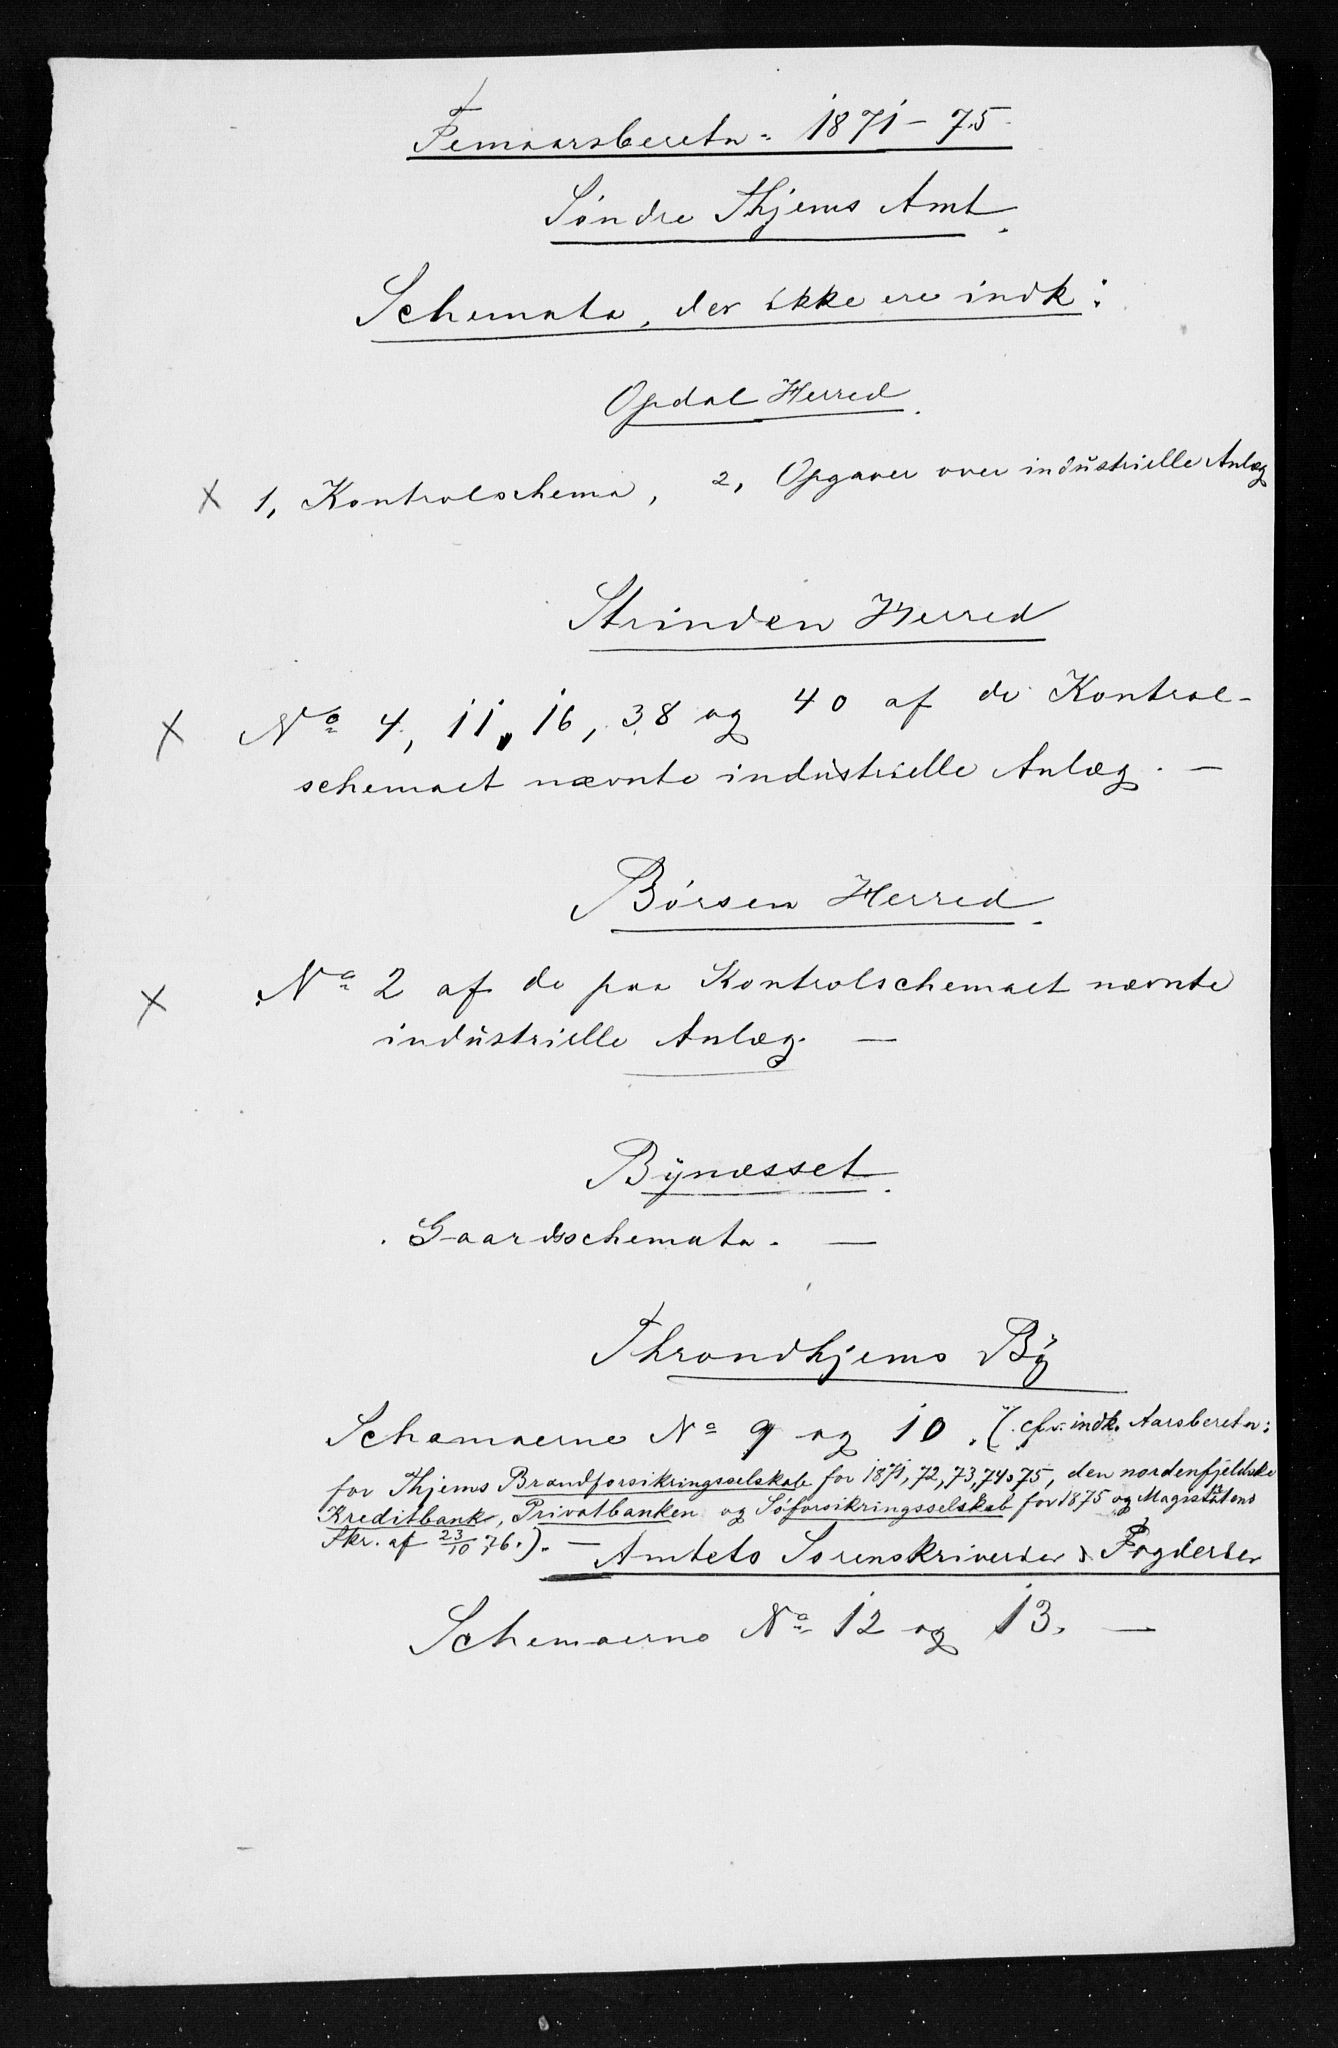 Femaarsberetn: 1871-75.
Søndre Thjems Amt.
Schemata, der ikke ere indk:
Opdal Herred.
× 1, Kontrolschema, 2, Opgaver over industrielle Anlæg
Strinden Herred
× No 4, 11, 16, 38 og 40 af de Kontrol-
schemaet nævnte industrielle Anlæg. —
Børsen Herred.
× No 2 af de paa Kontrolschemaet nævnte
industrielle Anlæg. —
Bynæsset.
Gaardsschemata. —
Throndhjems By
Schemaerne No 9 og 10. (cfr. indk. Aarsberetn:
for Thjems Brandforsikringsselskab for 1871, 72, 73, 74 & 75, den nordenfjeldske
Kreditbank, Privatbanken og Søforsikringsselskab for 1875 og Magistratens
Skr. af 23/10 76.). —
Amtets Sorenskriverier & Fogderier
Schemaerne No 12 og 13. —